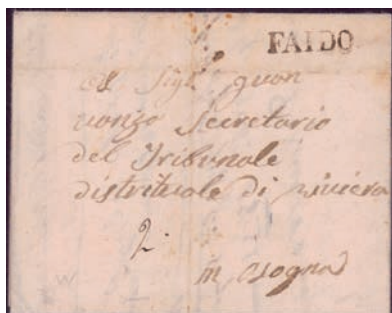 FAIDO
al Sigr
Secretario
del Tribunale
distrituale di riviera
2.
in osogna